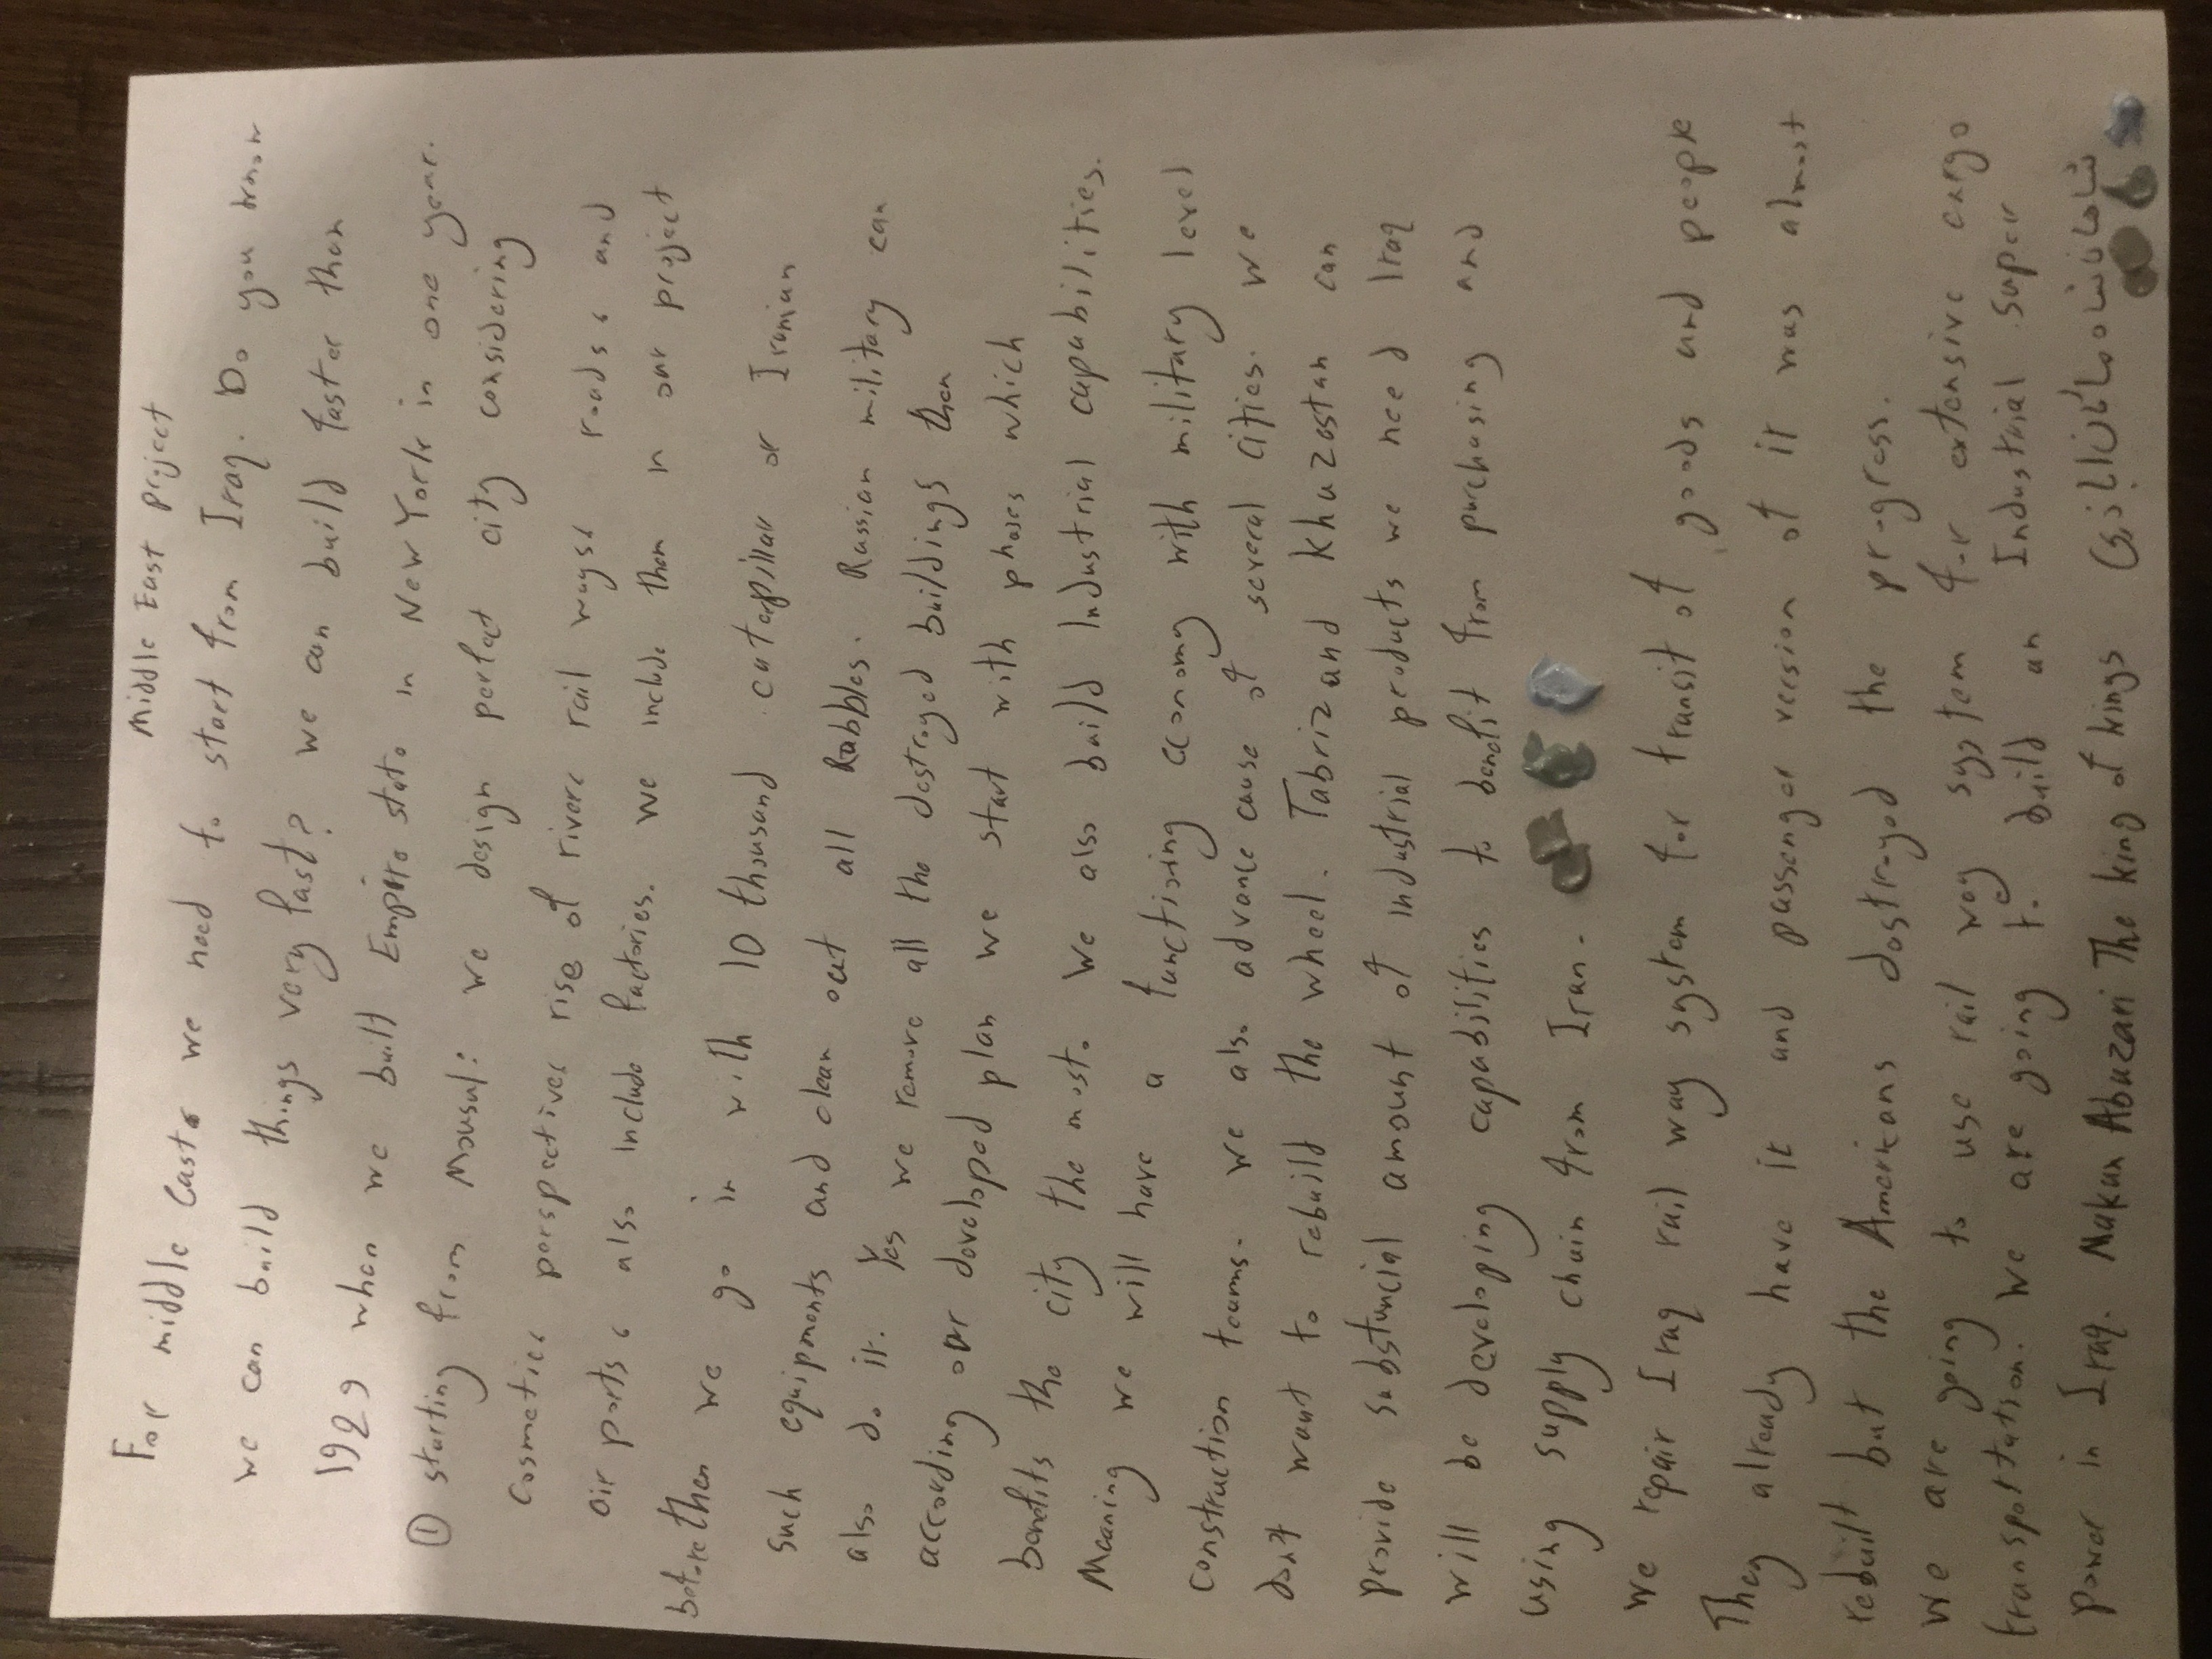 Middle East project
For middle East we need to start from Iraq. Do you know
we can build things very fast? we can build faster than
1929 when we built Empire state in New York in one year.
① starting from Mousul: we design perfect city considering
cosmetics perspectives rise of rivers rail ways roads and
air ports also include factories. we include them in our project
before then we go in with 10 thousand catepillar or Iranian
such equipments and clean out all Rubbles. Russian military can
also do it. Yes we remove all the destroyed buildings then
according our developed plan we start with phases which
benefits the city the most. we also build Industrial capabilities.
Meaning we will have a functioning economy with military level
construction teams. we also advance cause of several cities. we
dont want to rebuild the wheel. Tabriz and khuzestan can
provide substuncial amount of industrial products we need Iraq
will be developing capabilities to benefit from purchasing and
using supply chain from Iran.
we repair Iraq rail way system for transit of goods and people
They already have it and passenger version of it was almost
rebuilt but the Amerikans destroyed the progress.
we are going to use rail way system for extensive cargo
transportation. we are going to build an Industrial super
power in Iraq. Makan Abazari The king of kings